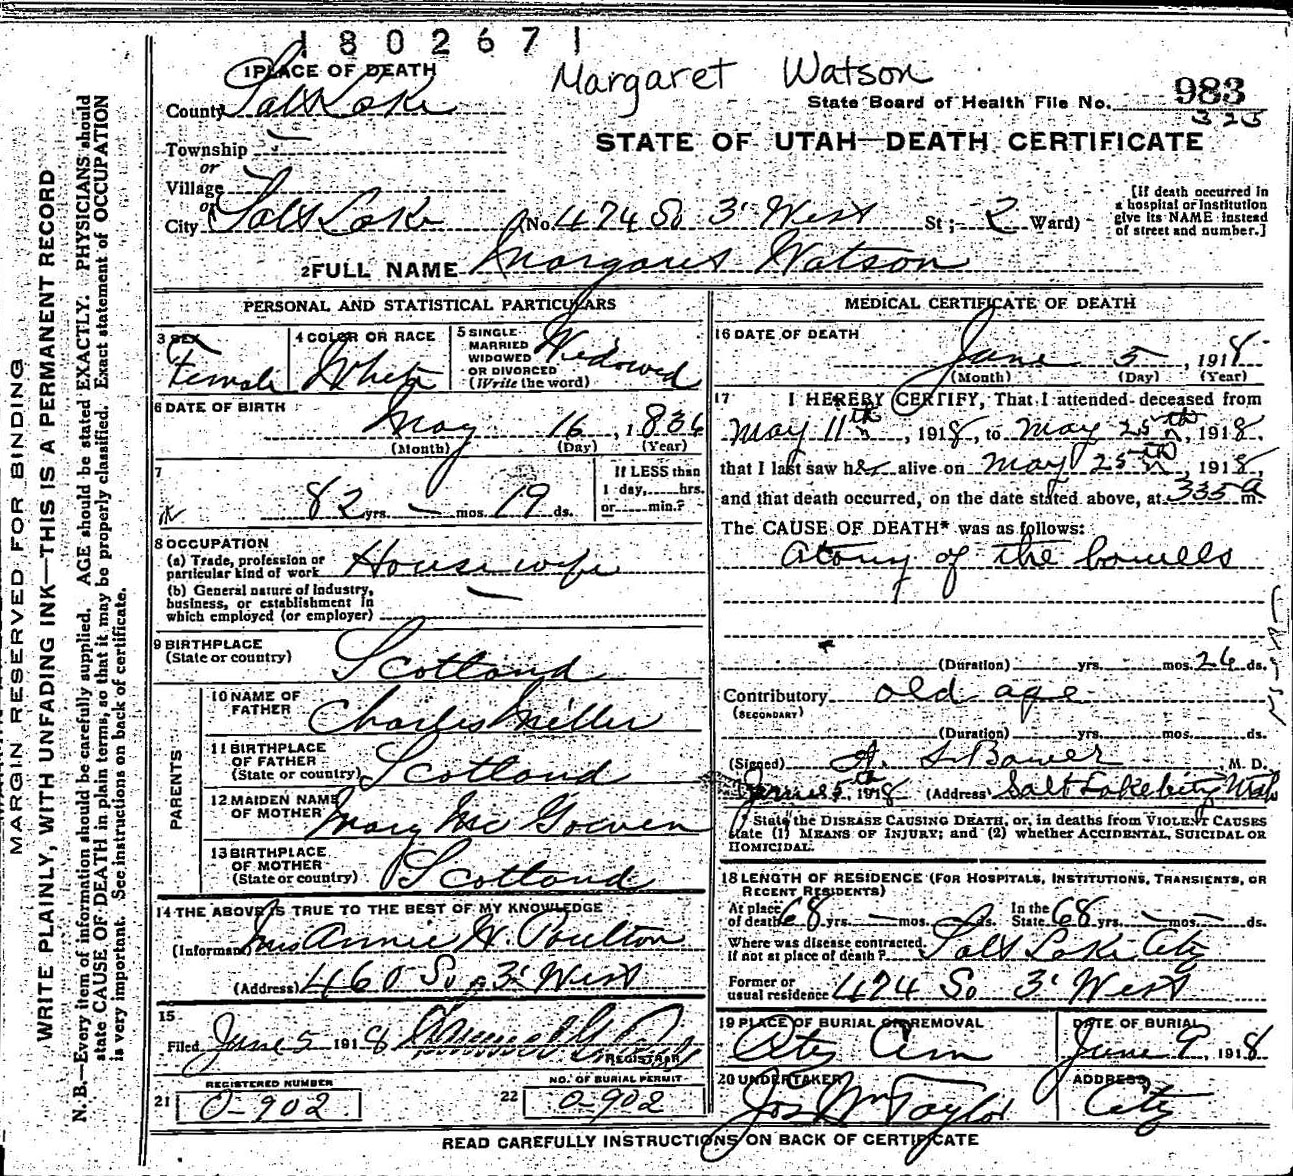 1802671
Margaret Watson
1 PLACE OF DEATH
County Salt Lake
State Board of Health File No. 983
323
STATE OF UTAH—DEATH CERTIFICATE
Township —
or
Village
or
City Salt Lake (No. 474 So 3' West St; - 2 Ward)
[If death occurred in
a hospital or institution
give its NAME instead
of street and number.]
2 FULL NAME Margaret Watson
PERSONAL AND STATISTICAL PARTICULARS
3 SEX
Female
4 COLOR OR RACE
White
5 SINGLE
MARRIED
WIDOWED
OR DIVORCED
(Write the word)
Widowed
6 DATE OF BIRTH
May 16, 1836
(Month) (Day) (Year)
7
82 yrs. — mos. 19 ds.
If LESS than
1 day, hrs.
or min.?
8 OCCUPATION
(a) Trade, profession or
particular kind of work House wife
(b) General nature of Industry,
business, or establishment in
which employed (or employer) —
9 BIRTHPLACE
(State or country)
Scotland
PARENTS
10 NAME OF
FATHER
Charles Miller
11 BIRTHPLACE
OF FATHER
(State or country) Scotland
12 MAIDEN NAME
OF MOTHER
Mary Mc Gowen
13 BIRTHPLACE
OF MOTHER
(State or country) Scotland
14 THE ABOVE IS TRUE TO THE BEST OF MY KNOWLEDGE
(Informant) Mrs Annie W. Poulton
(Address) 460 So 3' West
15
Filed June 5 1918
REGISTRAR
REGISTERED NUMBER
21 O-902
NO. OF BURIAL PERMIT
22 O-902
MEDICAL CERTIFICATE OF DEATH
16 DATE OF DEATH
June 5, 1918
(Month) (Day) (Year)
17 I HEREBY CERTIFY, That I attended deceased from
May 11th, 1918, to May 25th, 1918,
that I last saw her alive on May 25th, 1918,
and that death occurred, on the date stated above, at 335 a m.
The CAUSE OF DEATH* was as follows:
Atony of the bowells
(Duration) yrs. mos. 26 ds.
Contributory old age
(SECONDARY)
(Duration) yrs. mos. ds.
(Signed) A. S. Bower, M. D.
June 5th, 1918 (Address) Salt Lake City Utah
State the DISEASE CAUSING DEATH, or, in deaths from VIOLENT CAUSES
state (1) MEANS OF INJURY; and (2) whether ACCIDENTAL, SUICIDAL OR
HOMICIDAL.
18 LENGTH OF RESIDENCE (FOR HOSPITALS, INSTITUTIONS, TRANSIENTS, OR
RECENT RESIDENTS)
At place
of death 68 yrs. — mos. ds. In the
State 68 yrs. — mos. — ds.
Where was disease contracted,
if not at place of death? Salt Lake City
Former or
usual residence 474 So 3' West
19 PLACE OF BURIAL OR REMOVAL
City Cem
DATE OF BURIAL
June 9, 1918
20 UNDERTAKER
Jos Wm Taylor
ADDRESS
City
READ CAREFULLY INSTRUCTIONS ON BACK OF CERTIFICATE
MARGIN RESERVED FOR BINDING
WRITE PLAINLY, WITH UNFADING INK—THIS IS A PERMANENT RECORD
N. B.—Every item of information should be carefully supplied. AGE should be stated EXACTLY. PHYSICIANS should
state CAUSE OF DEATH in plain terms, so that it may be properly classified. Exact statement of OCCUPATION
is very important. See instructions on back of certificate.